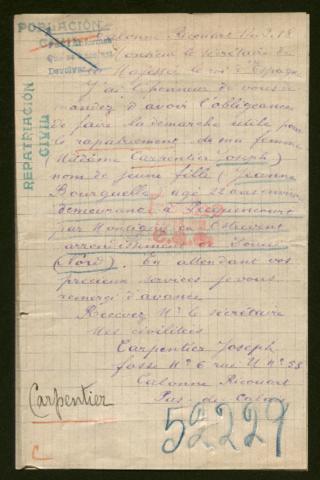 POBLACIÓN
CIVIL
Devolver
REPATRIACION
CIVIL
Calonne Ricouart
Monsieur le secrétaire de
sa Majesté le roi d'Espagne
J'ai l'honneur de vous de
mandez d'avoir l'obligeance
de faire la demarche utile pour
le rapatriement de ma femme
Madame Carpentier Joseph)
nom de jeune fille (Jeanne
Bourguelle) agé 22 ans
demeurant à Pecquencourt
par Montigny en Ostrevent
arrondissement de Douai
(Nord). En attendant vos
precieux services je vous
remerçi d'avance
Recevez Mr le secrétaire
mes civilitées
Carpentier Joseph
fosse No 6 rue U No 58
Calonne Ricouart
Pas de Calais
Carpentier
52229